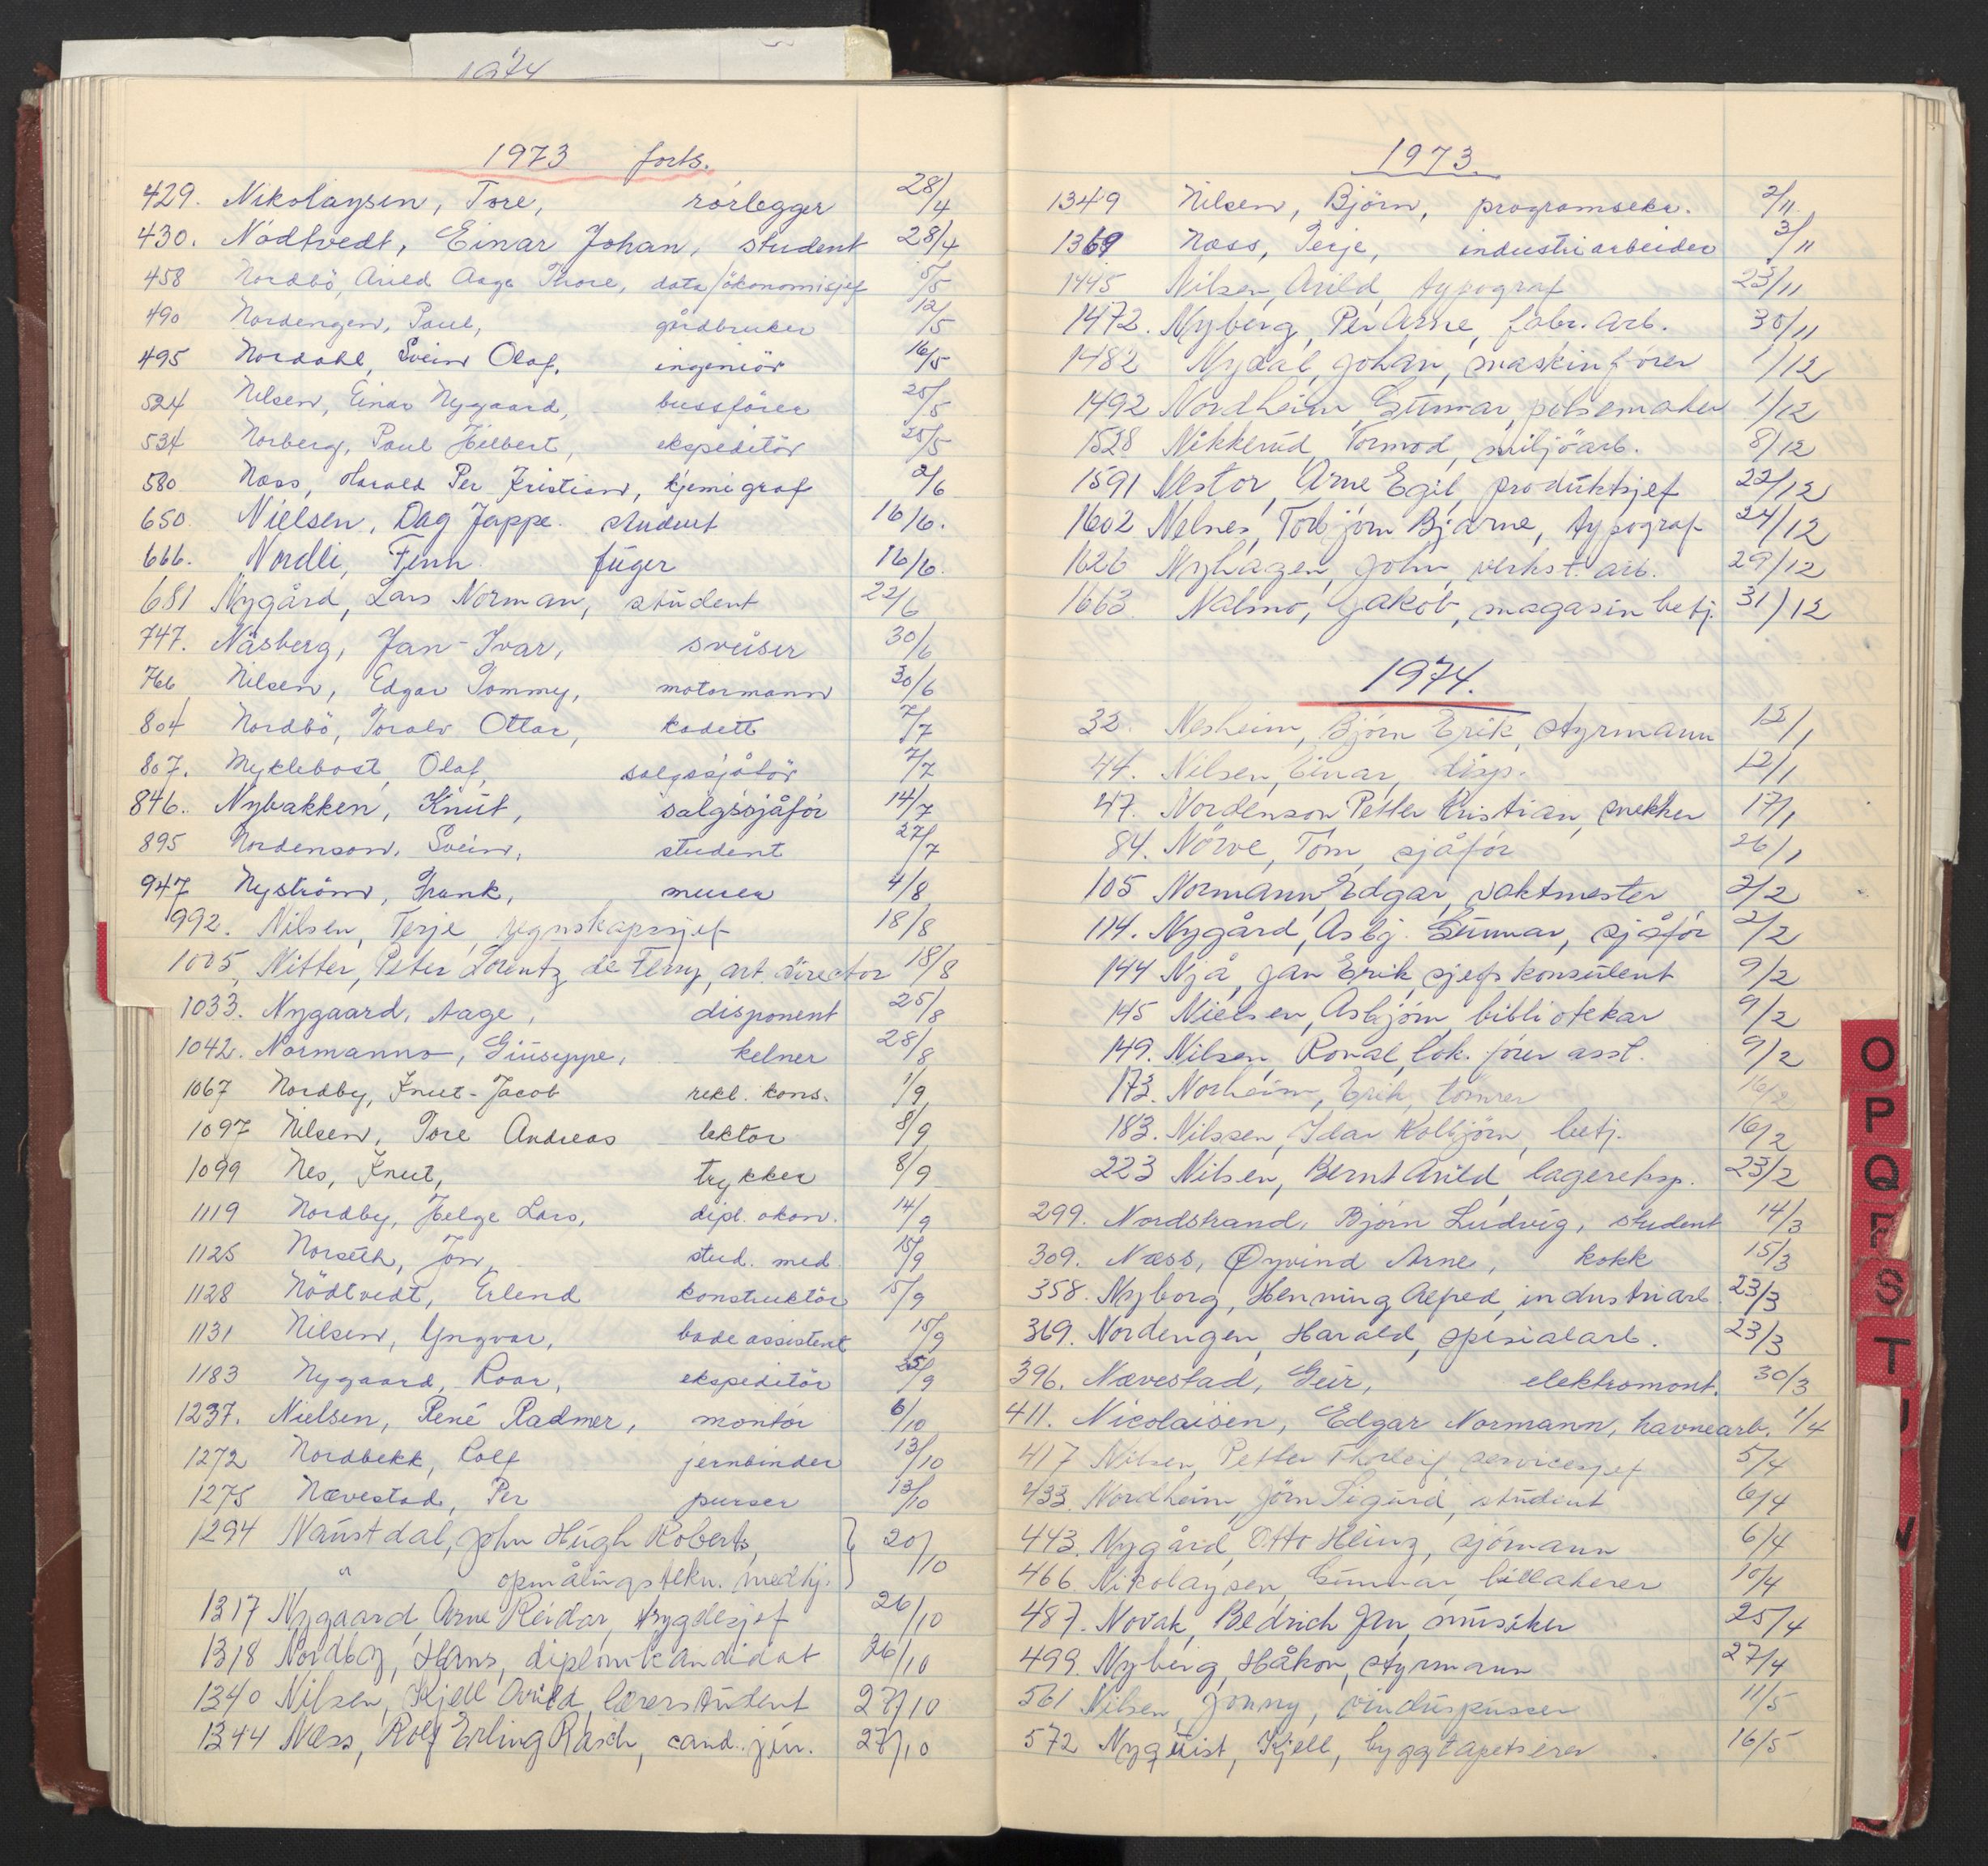 1974
1973 forts.
429. Nikolaysen, Tore, rörlegger 28/4
430. Nödtvedt, Einar Johan, student 28/4
458 Nordbö, Arild Aage Thore, data/ökonomisjef 5/5
490 Nordengen, Paul, gårdbruker 12/5
495 Nordahl, Svein Olaf, ingeniör 16/5
524 Nilsen, Einar Nygaard, bussförer 25/5
534 Norberg, Paul Hilbert, ekspeditör 25/5
580 Næss, Harald Per Kristian, kjemigraf 2/6
650 Nielsen, Dag Jappe. student 16/6.
666. Nordli, Finn fuger 16/6.
681 Nygård, Lars Norman, student 22/6
747. Nåsberg, Jan-Ivar, sveiser 30/6
766 Nilsen, Edgar Tommy, motormann 30/6
804 Nordbö, Toralv Ottar, kadett 7/7
807. Myklebost, Olaf, salgssjåför 7/7
846. Nybakken, Knut, salgssjåför 14/7
895 Nordenson, Svein, student 27/7
947 Nyström, Frank, murer 4/8
992. Nilsen, Terje, regnskapssjef 18/8
1005, Nitter, Peter Lorentz de Ferry, art. director 18/8
1033. Nygaard, Aage, disponent 25/8
1042. Normanno, Giuseppe, kelner 28/8
1067 Nordby, Knut-Jacob rekl. kons. 1/9
1097 Nilsen, Tore Andreas lektor 8/9
1099 Nes, Knut, trykker 8/9
1119 Nordby, Helge Lars, dipl. økon. 14/9
1125 Norseth, Jon, stud. med. 15/9
1128 Nödtvedt, Erlend konstruktör 15/9
1131 Nilsen, Yngvar, badeassistent 15/9
1183 Nygaard, Roar, ekspeditör 25/9
1237. Nielsen, René Radmer, montör 6/10
1272 Nordbekk, Rolf jernbinder 13/10
1275 Nævestad, Per purser 13/10
1294 Naustdal, John Hugh Roberts, } 20/10
" opmålingstekn. medhj.
1317 Nygaard, Arne Reidar, trygdesjef 26/10
1318 Nordby, Hans, diplomkandidat 26/10
1340 Nilsen, Kjell Arild, lærerstudent 27/10
1344 Næss, Rolf Erling Rasch, cand. jur. 27/10
1973.
1349 Nilsen, Björn, programsekr. 2/11
1369 Næss, Terje, industriarbeider 3/11
1445 Nilsen, Arild, typograf 23/11
1472. Nyberg, Per Arne, fabr. arb. 30/11
1482 Nydal, Johan, maskinförer 1/12
1492 Nordheim, Gunnar, pölsemaker 1/12
1528 Nikkerud, Tormod, miljöarb. 8/12
1591 Nestor, Arne Egil, produktsjef 22/12
1602 Nelnes, Torbjörn Bjarne, typograf 24/12
1626 Nyhagen, John, verkst. arb. 29/12
1663 Nalmo, Jakob, magasinbetj. 31/12
1974.
32. Nesheim, Björn Erik, styrmann 12/1
44. Nilsen, Einar, disp. 12/1
47. Nordenson Petter Kristian, snekker 17/1
84. Nörve, Tom, sjåför 26/1
105 Normann, Edgar, vaktmester 2/2
114. Nygård, Asbj. Gunnar, sjåför 2/2
144 Njå, Jan Erik, sjefskonsulent 9/2
145 Nielsen, Asbjörn, bibliotekar 9/2
149. Nilsen, Ronal, lok. förer asst. 9/2
173. Norheim, Erik, tömrer 16/2
183. Nilssen, Idar Kolbjörn, betj. 16/2
223 Nilsen, Bernt Arild, lagereksp. 23/2
299. Nordstrand, Björn Ludvig, student 14/3
309. Næss, Øyvind Arne, kokk 15/3
358. Nyborg, Henning Alfred, industriarb. 23/3
369. Nordengen, Harald, spesialarb. 23/3
396. Nævestad, Geir, elektromont. 30/3
411. Nicolaisen, Edgar Normann, havnearb. 1/4
417 Nilsen, Petter Thorleif servicesjef 5/4
433. Nordheim, Jörn Sigurd, student 6/4
443. Nygård, Otto Heinz, sjömann 6/4
466. Nikolaysen, Gunnar, billakerer 10/4
487. Novak, Bedrich Jan, musiker 25/4
499. Nyberg, Håkon, styrmann 27/4
561 Nilsen, Jonny, vinduspusser 11/5
572 Nyquist, Kjell, byggtapetserer 16/5
O
P
Q
R
S
T
U
V